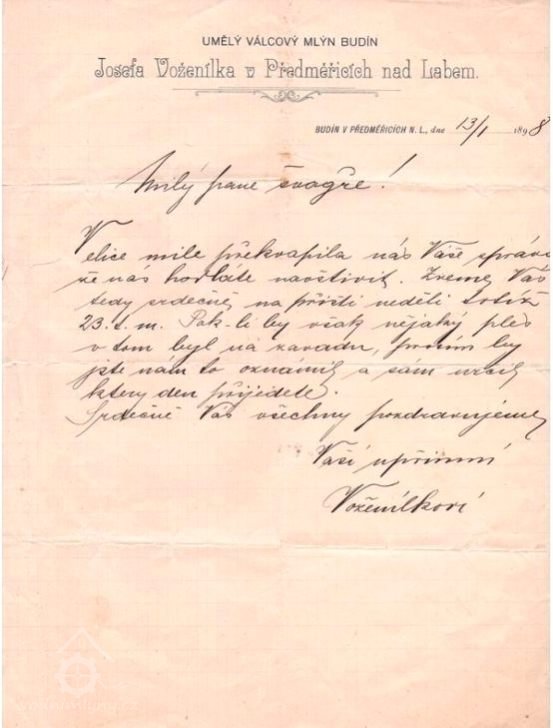 UMĚLÝ VÁLCOVÝ MLÝN BUDÍN
Josefa Voženílka v Předměřicích nad Labem.
BUDÍN V PŘEDMĚŘICÍCH N. L., dne 13/1 1898
Milý pane švagře!
Velice mile překvapila nás Vaše správa
že nás hodláte navštívit. Zveme Vás
tedy srdečně na příští neděli totiž
23. t. m. Pak-li by však nějaký ples
v tom byl na závadu, prosím by
jste nám to oznámil a sám určil
který den přijedete.
Srdečně Vás všechny pozdravujeme
Vaši upřímní
Voženílkovi